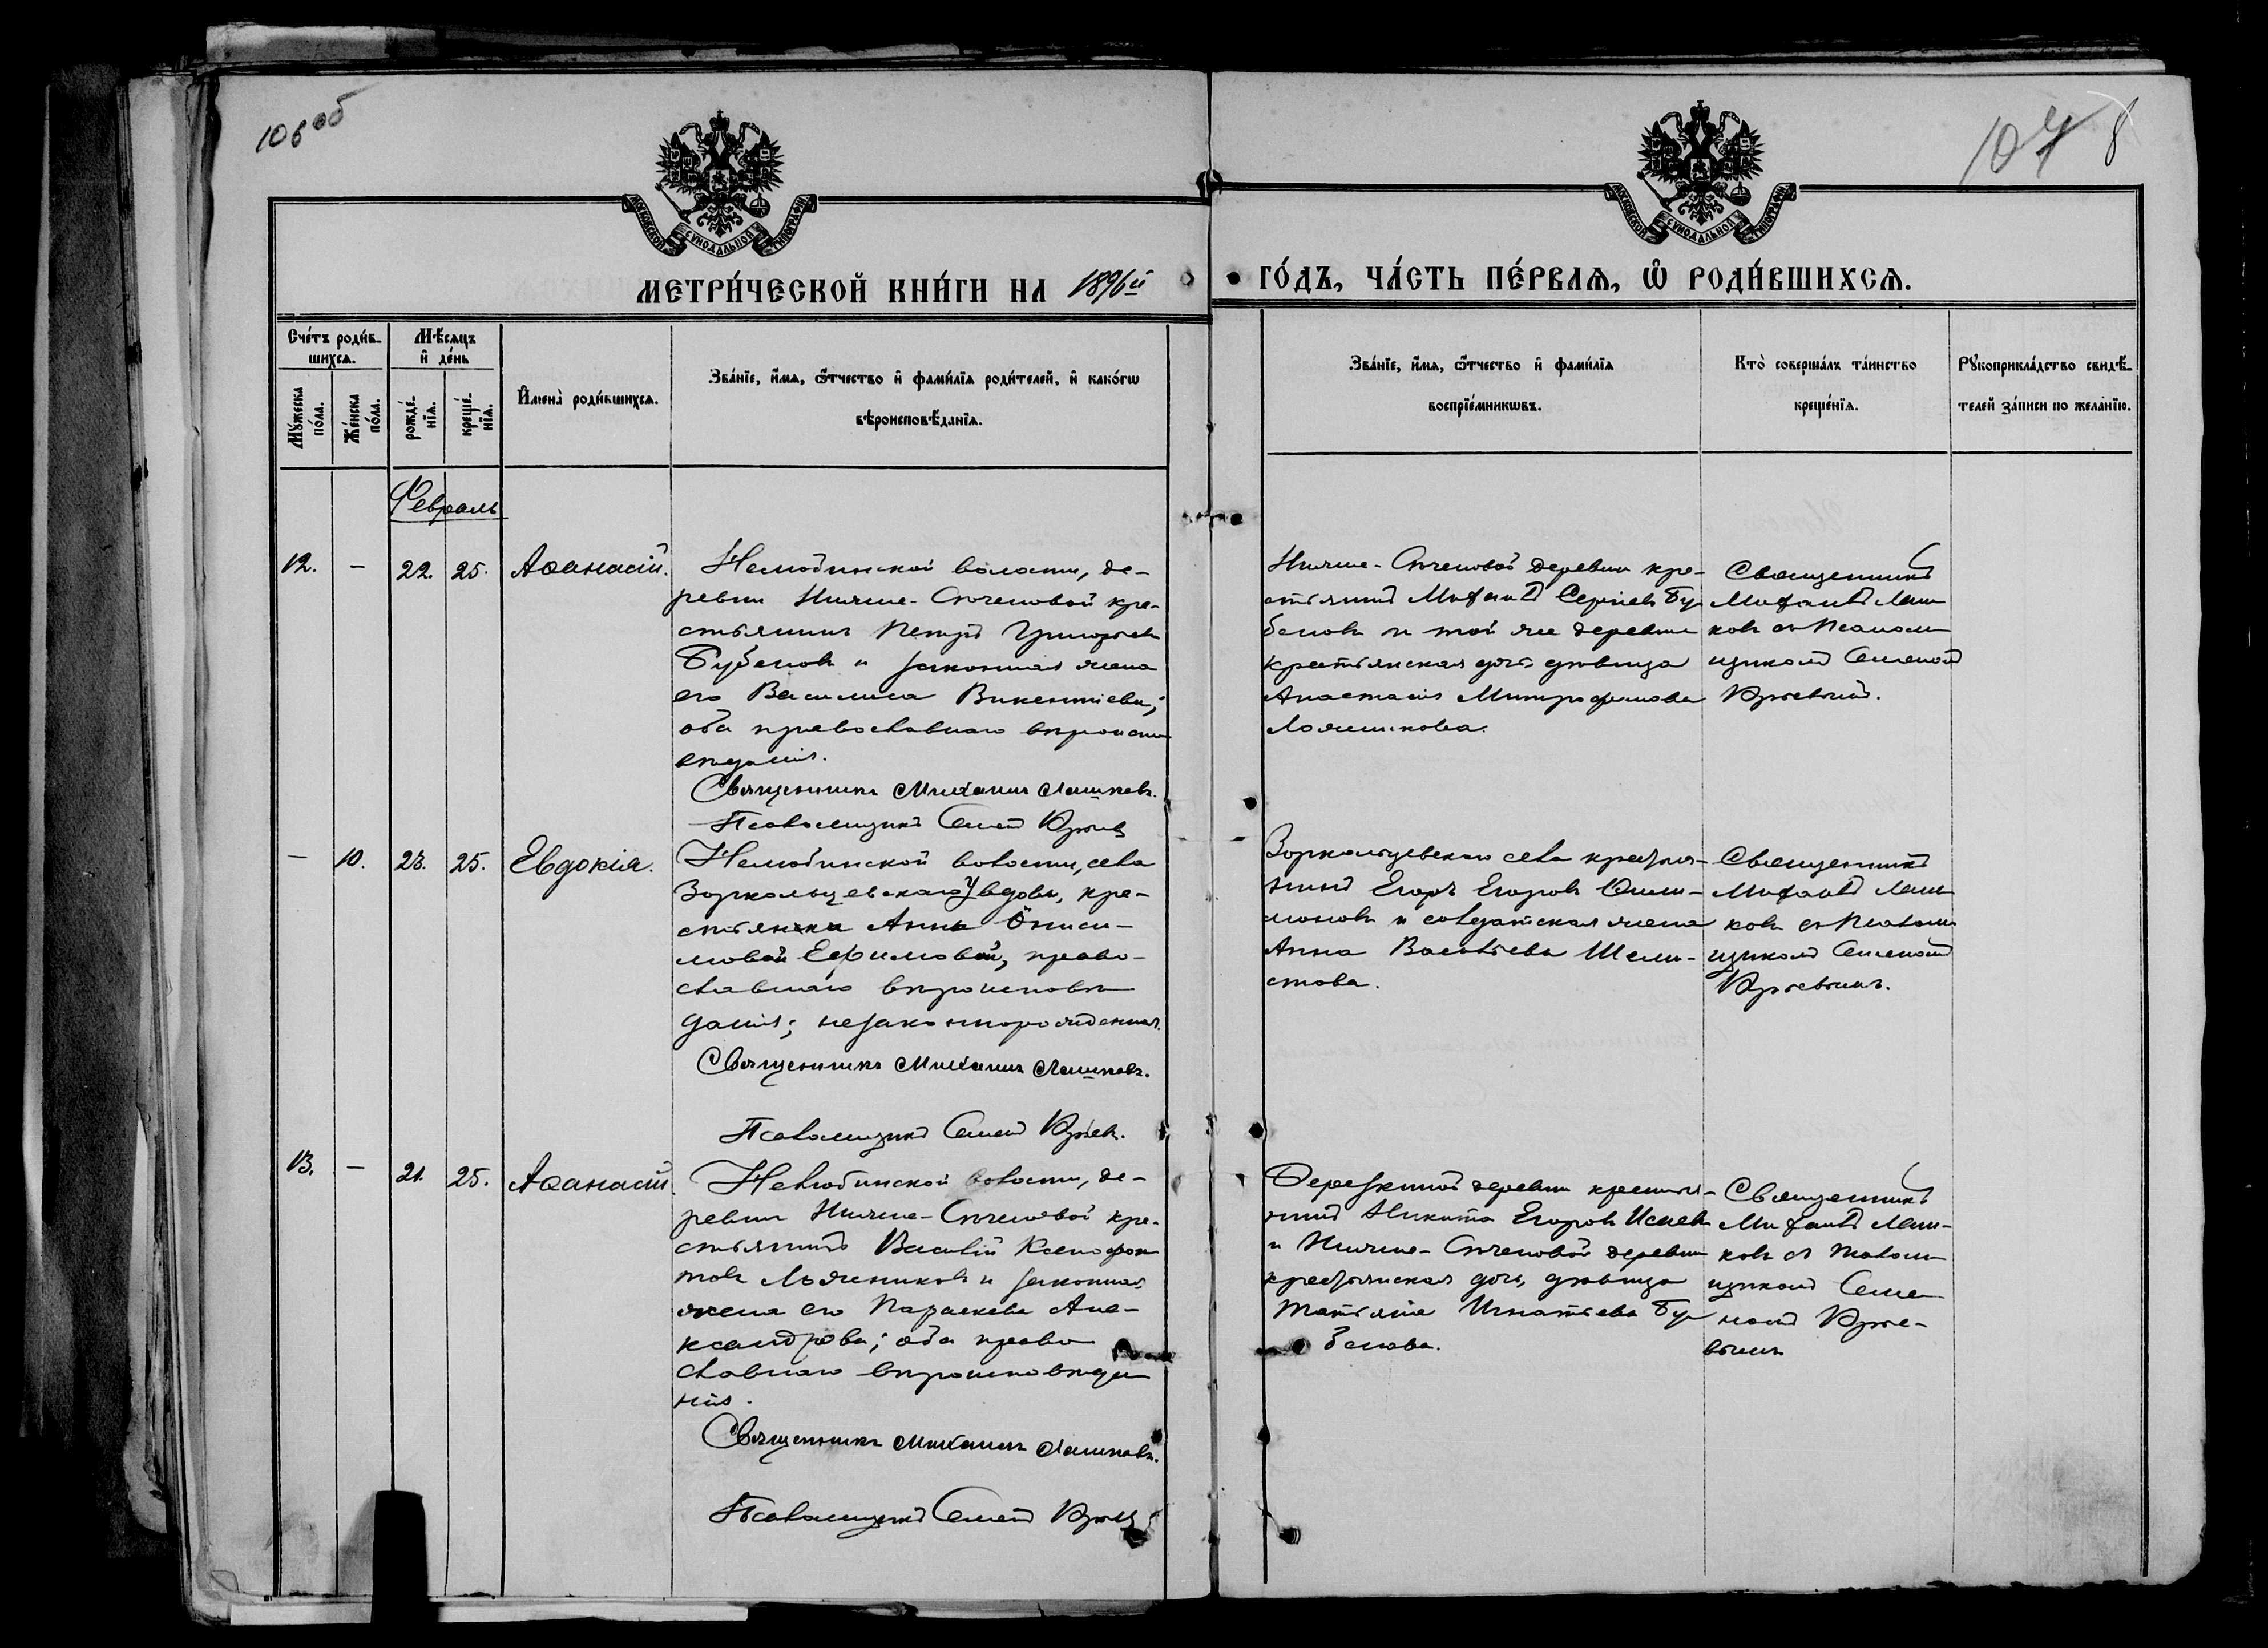 106 об
107
8
МОСКОВСКОЙ СѴНОДАЛЬНОЙ ТИПОГРАФІИ
МОСКОВСКОЙ СѴНОДАЛЬНОЙ ТИПОГРАФІИ
МЕТРИ́ЧЕСКОЙ КНИ́ГИ НА 1896й
ГО́ДЪ, ЧА́СТЬ ПЕ́РВАѦ, Ѡ҆ РОДИ́ВШИХСѦ.
Сче́тъ роди́в-
шихсѧ.
Му́жеска по́ла.
Же́нска по́ла.
Мѣ́сѧцъ
и҆ де́нь
рожде́-
нїѧ.
креще́-
нїѧ.
И҆мена̀ роди́вшихсѧ.
Зва́нїе, и҆́мѧ, ѻ҆́тчество и҆ фами́лїѧ роди́телей, и҆ како́гѡ
вѣроисповѣ́данїѧ.
Зва́нїе, и҆́мѧ, ѻ҆́тчество и҆ фами́лїѧ
воспрїе́мникѡвъ.
Кто̀ соверша́лъ та́инство
креще́нїѧ.
Рꙋкоприкла́дство свидѣ́-
телей за́писи по жела́нїю.
Февраль
12. – 22. 25. Аѳанасій.
Нелюбинской волости, де-
ревни Нижне-Сѣченовой кре-
стьянинъ Петръ Григорьевъ
Бубеновъ и законная жена
его Василиса Викентіева;
оба православнаго вѣроиспо
вѣданія.
Священникъ Михаилъ Лашковъ.
Псаломщикъ Семенъ Юрьев
Нижне-Сѣченовой деревни кре-
стьянинъ Михаилъ Сергіевъ Бу
беновъ и той же деревни
крестьянская дочь дѣвица
Анастасія Митрофанова
Ложникова.
Священникъ
Михаилъ Лаш
ковъ съ псалом
щикомъ Семеномъ
Юрьевымъ.
– 10. 23. 25. Евдокія.
Нелюбинской волости, села
Зоркальцевскаго у вдовы, кре-
стьянки Анны Ониси-
мовой Ефимовой, право-
славнаго вѣроисповѣ
данія; незаконнорожденная.
Священникъ Михаилъ Лашковъ.
Псаломщикъ Семенъ Юрьев.
Зоркальцевскаго села крестья-
нинъ Егоръ Егоровъ
и солдатская жена
Анна Васильева Шели-
стова.
Священникъ
Михаилъ Лаш
ковъ съ псалом
щикомъ Семеномъ
Юрьевымъ.
13. – 21. 25. Аѳанасій.
Нелюбинской волости, де-
ревни Нижне-Сѣченовой кре-
стьянинъ Василій Ксенофон
товъ Ложниковъ и законная
жена его Параскева Але-
ксандрова; оба право
славнаго вѣроисповѣда
нія.
Священникъ Михаилъ Лашковъ.
Псаломщикъ Семенъ Юрьев
деревни крестья-
нинъ Никита Егоровъ Исаевъ
и Нижне-Сѣченовой деревни
крестьянская дочь, дѣвица
Татьяна Игнатьева Бу
бенова.
Священникъ
Михаилъ Лаш-
ковъ съ псалом
щикомъ Семе
номъ Юрье-
вымъ